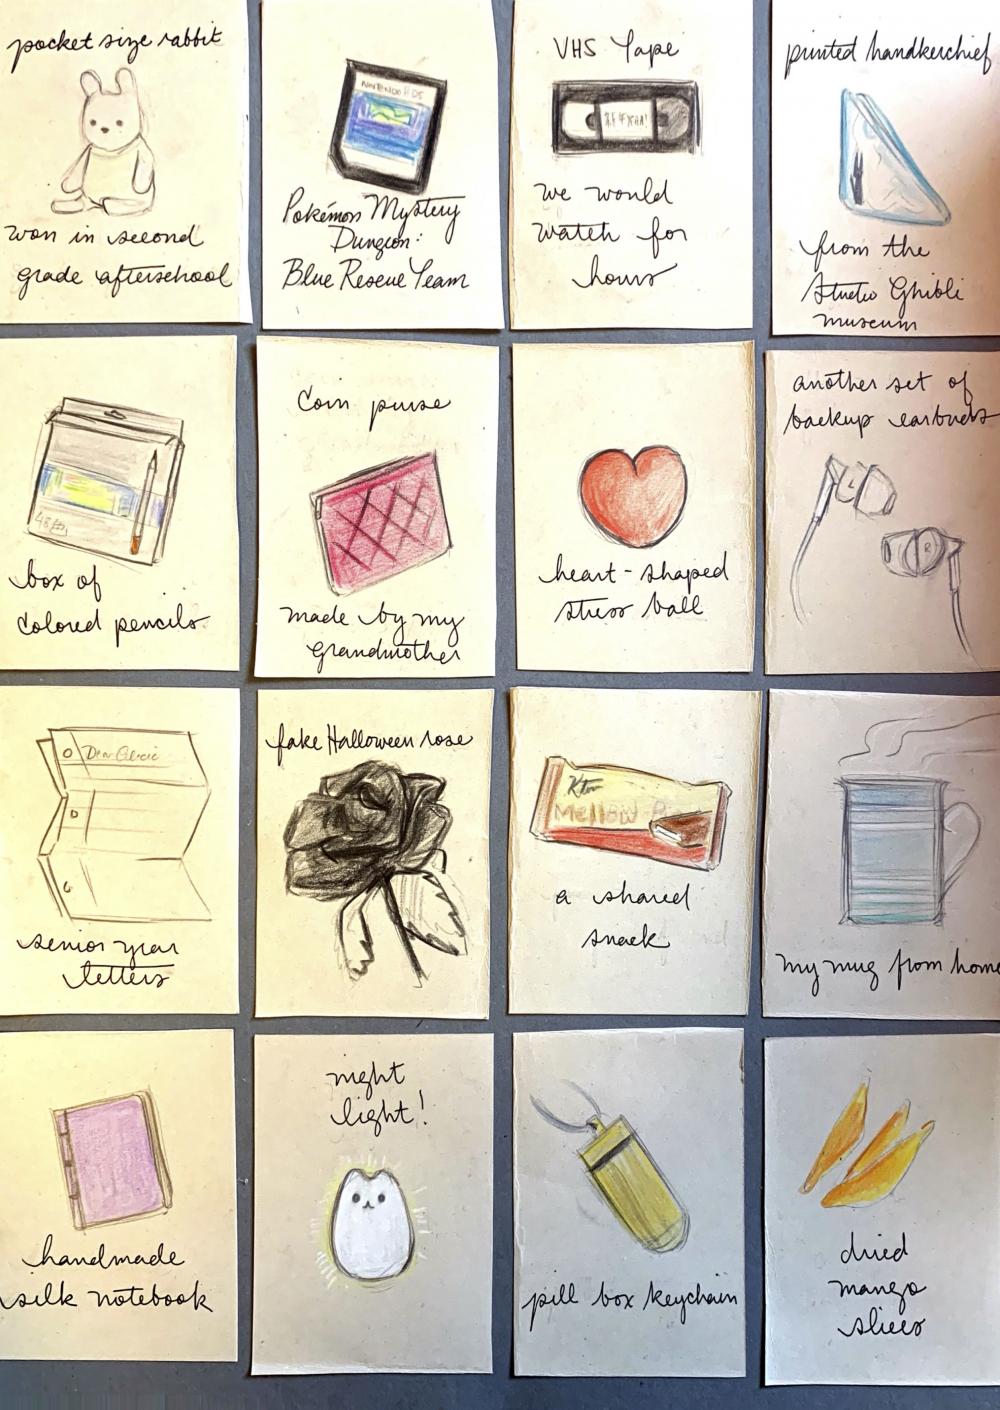 pocket size rabbit
won in second
grade afterschool
NINTENDO DS
Pokémon Mystery
Dungeon:
Blue Rescue Team
VHS Tape
we would
watch for
hours
printed handkerchief
from the
Studio Ghibli
museum
48
box of
colored pencils
Coin purse
made by my
grandmother
heart-shaped
stress ball
another set of
backup earbuds
L
R
Dear
senior year
letters
fake Halloween rose
Mellow
a shared
snack
my mug from home
handmade
silk notebook
night
light!
pill box keychain
dried
mango
slices